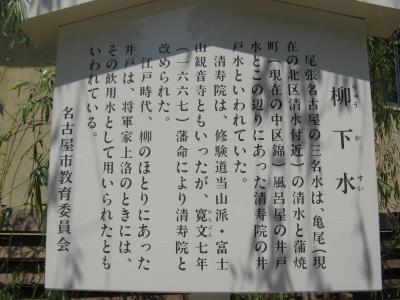 柳下水
りゅうかすい
尾張名古屋の三名水は、亀尾(現
在の北区清水付近)の清水と蒲焼
町(現在の中区錦)風呂屋の井戸
水とこの辺りにあった清寿院の井
戸水といわれていた。
清寿院は、修験道当山派・富士
山観音寺ともいったが、寛文七年
(一六六七)藩命により清寿院と
改められた。
江戸時代、柳のほとりにあった
井戸は、将軍家上洛のときには、
その飲用水として用いられたとも
いわれている。
名古屋市教育委員会